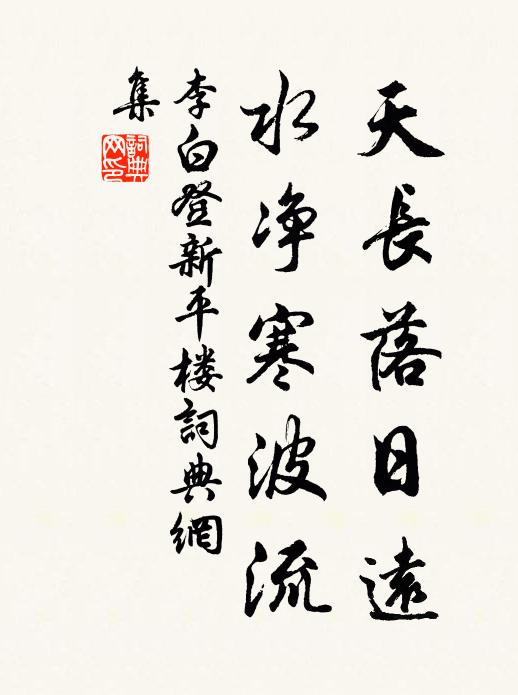 天長落日遠
水净寒波流
李白登新平楼詞典網
集
詞典网印